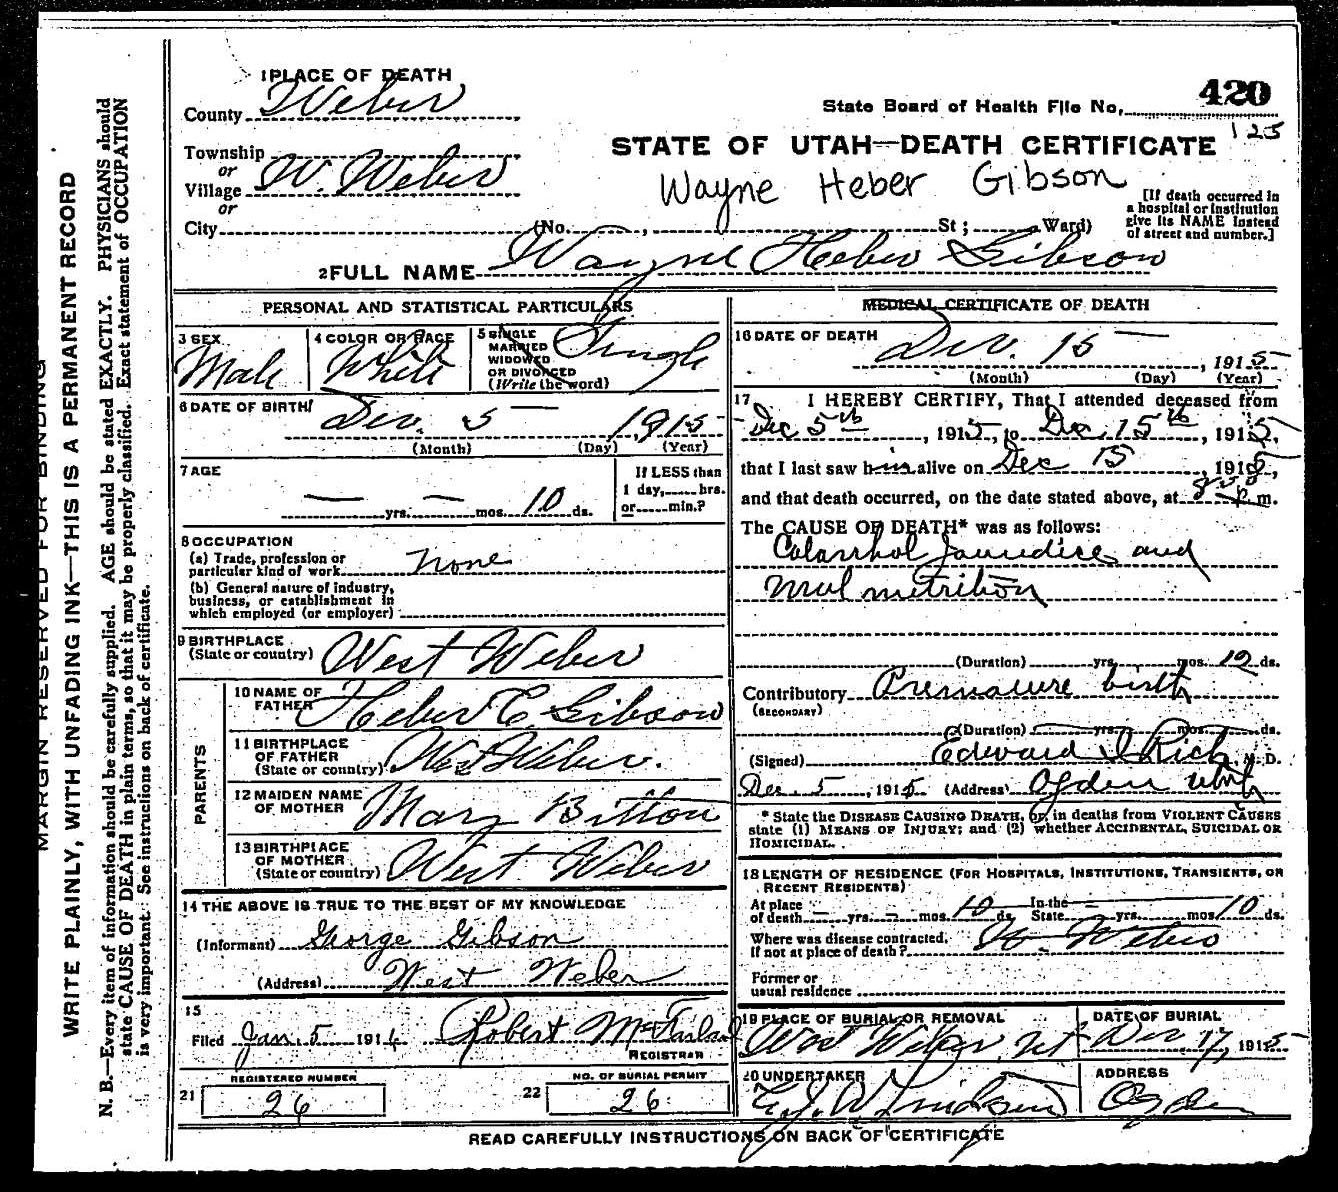 1 PLACE OF DEATH
County Weber
State Board of Health File No. 420
125
Township
or
Village W. Weber
or
City
STATE OF UTAH—DEATH CERTIFICATE
Wayne Heber Gibson
(No. , St; Ward)
[If death occurred in
a hospital or institution
give its NAME instead
of street and number.]
2 FULL NAME Wayne Heber Gibson
PERSONAL AND STATISTICAL PARTICULARS
3 SEX
Male
4 COLOR OR RACE
White
5 SINGLE
MARRIED
WIDOWED
OR DIVORCED
(Write the word)
Single
6 DATE OF BIRTH
Dec. 5 — 1915
(Month) (Day) (Year)
7 AGE
— yrs. — mos. 10 ds.
If LESS than
1 day, hrs.
or min.?
8 OCCUPATION
(a) Trade, profession or
particular kind of work none
(b) General nature of industry,
business, or establishment in
which employed (or employer)
9 BIRTHPLACE
(State or country) West Weber
PARENTS
10 NAME OF
FATHER Heber C Gibson
11 BIRTHPLACE
OF FATHER
(State or country) West Weber.
12 MAIDEN NAME
OF MOTHER Mary Bitton
13 BIRTHPLACE
OF MOTHER
(State or country) West Weber
14 THE ABOVE IS TRUE TO THE BEST OF MY KNOWLEDGE
(Informant) George Gibson
(Address) West Weber
15
Filed Jan. 5 1916 Robert McFarland
REGISTRAR
REGISTERED NUMBER
21 26
NO. OF BURIAL PERMIT
22 26
MEDICAL CERTIFICATE OF DEATH
16 DATE OF DEATH
Dec. 15 — , 1915
(Month) (Day) (Year)
17 I HEREBY CERTIFY, That I attended deceased from
Dec 5th , 1915, to Dec, 15th , 1915,
that I last saw him alive on Dec 15 , 1915,
and that death occurred, on the date stated above, at p.m.
The CAUSE OF DEATH* was as follows:
Catarrhal Jaundice and
Mal nutrition
(Duration) yrs. mos. 10 ds.
Contributory Premature birth
(SECONDARY)
(Duration) yrs. mos. ds.
(Signed) Edward I Rich, M. D.
Dec. 5 , 1915 (Address) Ogden Utah
* State the DISEASE CAUSING DEATH, or, in deaths from VIOLENT CAUSES
state (1) MEANS OF INJURY; and (2) whether ACCIDENTAL, SUICIDAL OR
HOMICIDAL.
18 LENGTH OF RESIDENCE (FOR HOSPITALS, INSTITUTIONS, TRANSIENTS, OR
RECENT RESIDENTS)
At place
of death — yrs. — mos. 10 ds.
In the
State yrs. mos. 10 ds.
Where was disease contracted,
If not at place of death? W. Weber
Former or
usual residence
19 PLACE OF BURIAL OR REMOVAL
West Weber, Ut
DATE OF BURIAL
Dec. 17, 1915
20 UNDERTAKER
ADDRESS
Ogden
READ CAREFULLY INSTRUCTIONS ON BACK OF CERTIFICATE
MARGIN RESERVED FOR BINDING
WRITE PLAINLY, WITH UNFADING INK—THIS IS A PERMANENT RECORD
N. B.—Every item of information should be carefully supplied. AGE should be stated EXACTLY. PHYSICIANS should
state CAUSE OF DEATH in plain terms, so that it may be properly classified. Exact statement of OCCUPATION
is very important. See instructions on back of certificate.